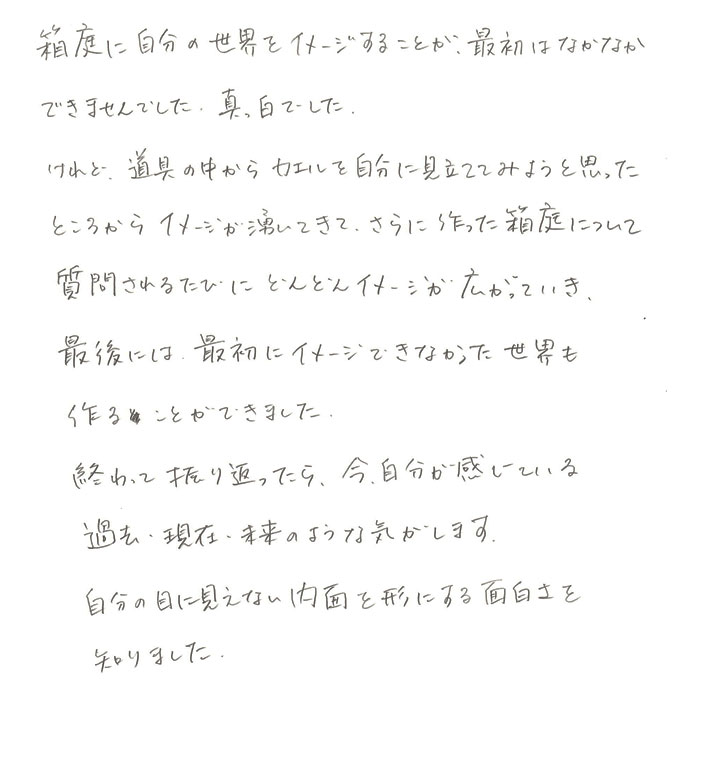 箱庭に自分の世界をイメージすることが、最初はなかなか
できませんでした。真っ白でした。
けれど、道具の中からカエルを自分に見立ててみようと思った
ところからイメージが湧いてきて、さらに作った箱庭について
質問されるたびにどんどんイメージが広がっていき、
最後には、最初にイメージできなかった世界も
作ることができました。
終わって振り返ったら、今、自分が感じている
過去・現在・未来のような気がします。
自分の目に見えない内面を形にする面白さを
知りました。